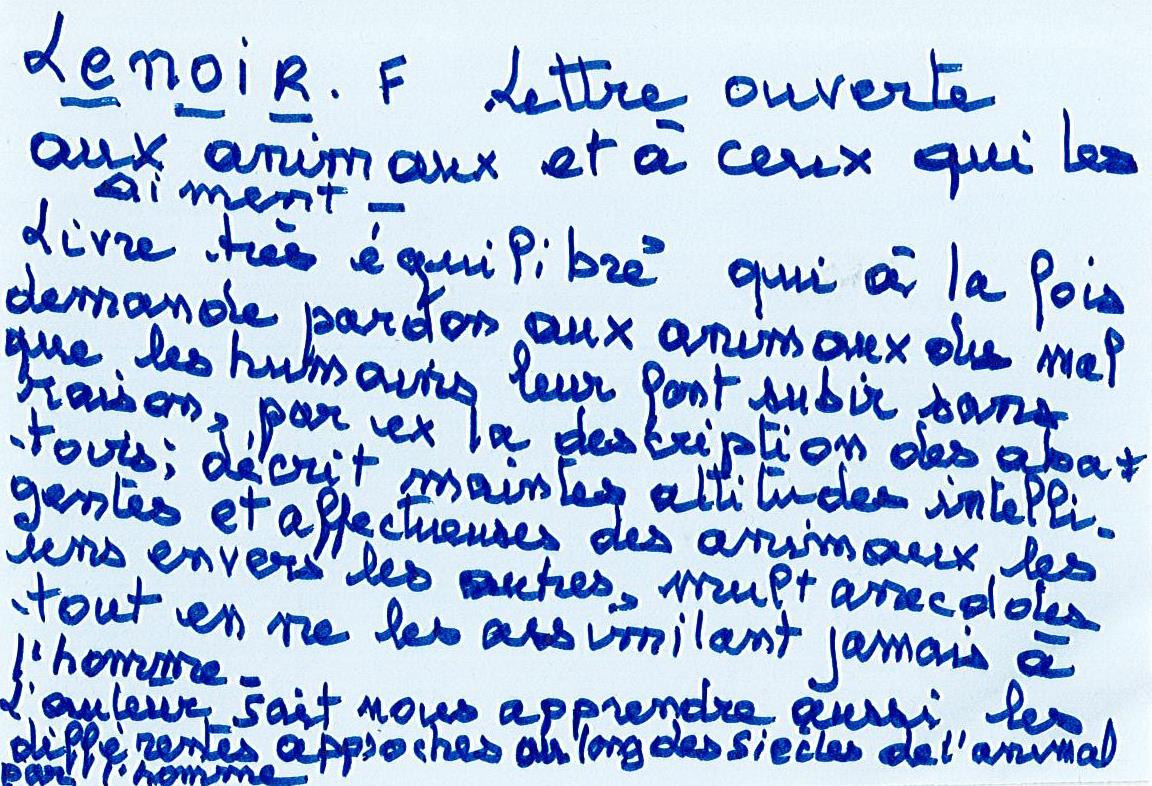 Lenoir. F Lettre ouverte
aux animaux et à ceux qui les
aiment -
Livre très équilibré qui à la fois
demande pardon aux animaux du mal
que les humains leur font subir sans
raison, par ex la description des abat
toirs; décrit maintes attitudes intelli-
gentes et affectueuses des animaux les
uns envers les autres, mult anecdotes
tout en ne les assimilant jamais à
l'homme -
L'auteur sait nous apprendre aussi les
différentes approches au long des siècles de l'animal
par l'homme